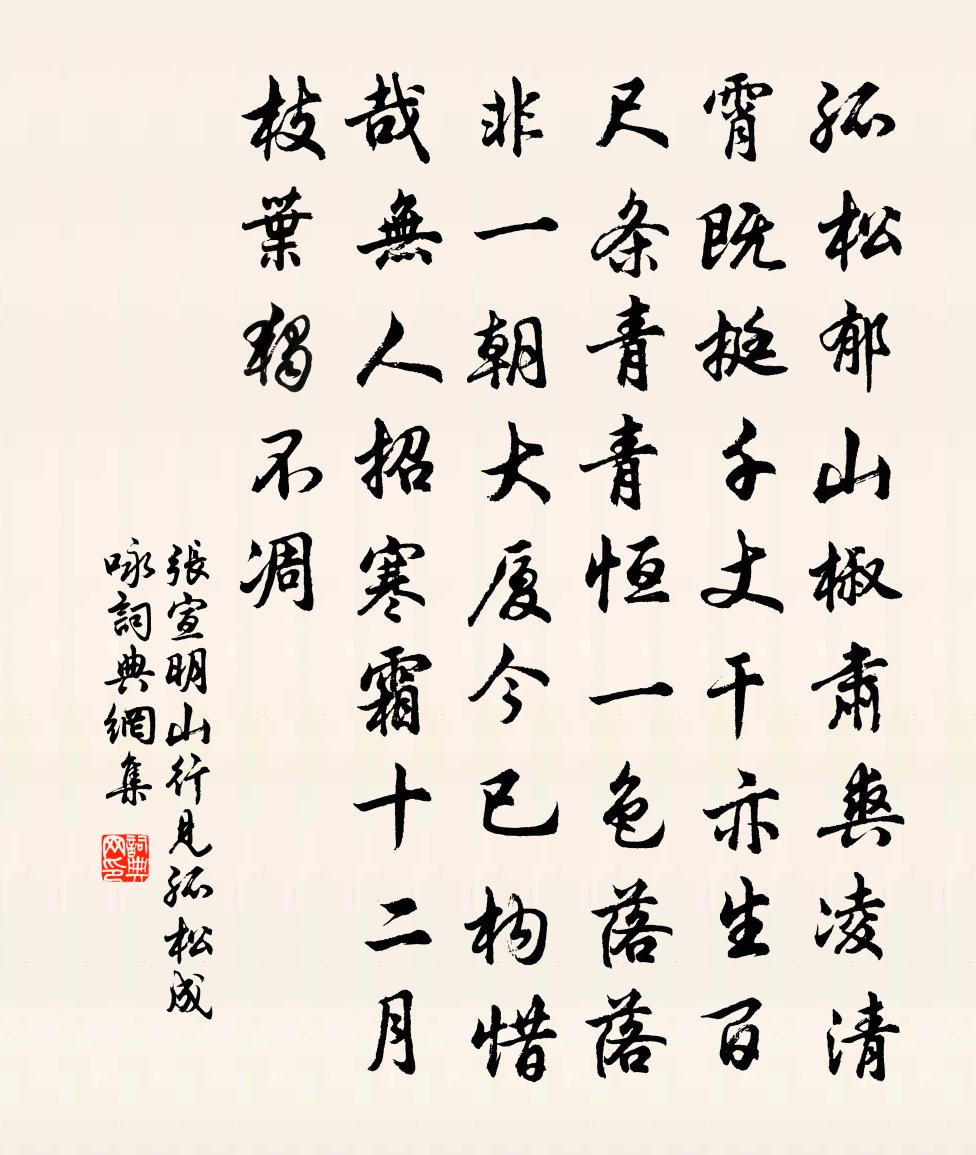 孤松郁山椒肃爽凌清
霄既挺千丈干亦生百
尺条青青恒一色落落
非一朝大厦今已构惜
哉無人招寒霜十二月
枝葉獨不凋
張宣明山行見孤松成
咏詞典網集
詞典网印